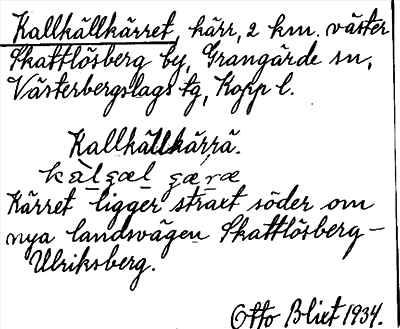 Kallkällkärret, kärr, 2 km. väster
Skattlösberg by, Grangärde sn,
Västerbergslags tg, Kopp l.
Kallkällkärrä.
kàl̠çæl çæ̠ræ
Kärret ligger straxt söder om
nya landsvägen Skattlösberg –
Ulriksberg.
Otto Blixt 1934.